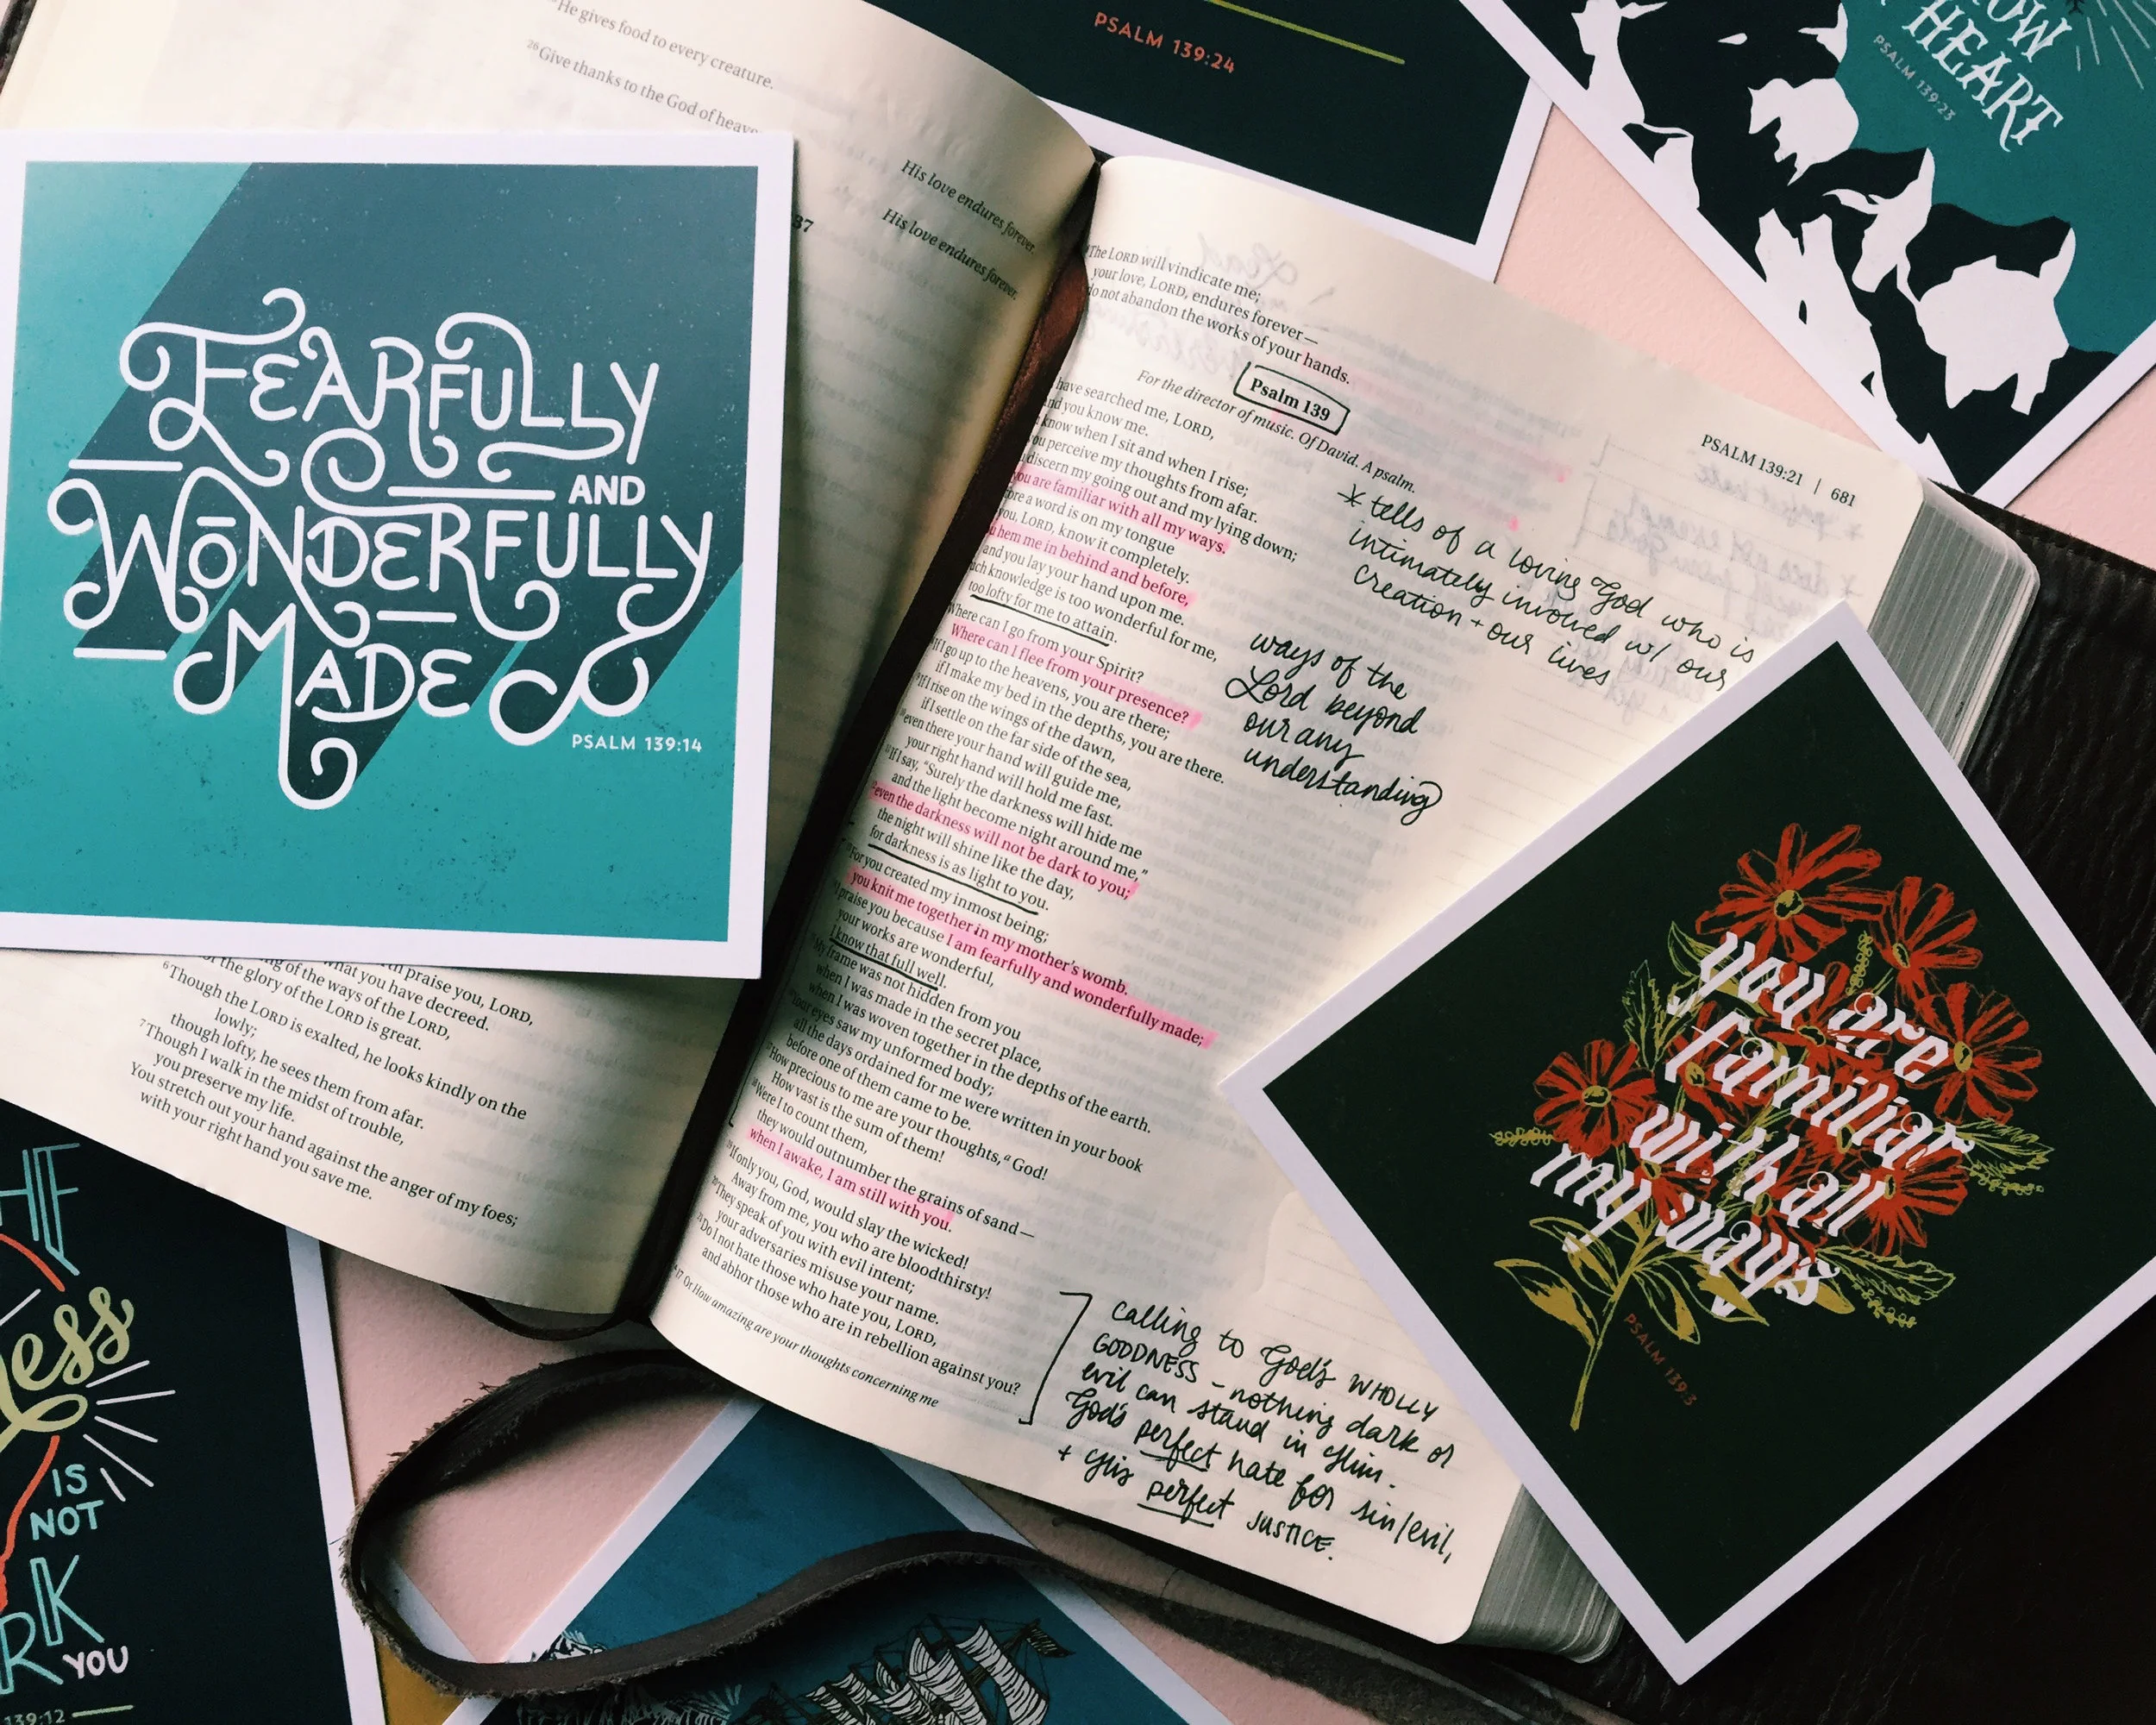 He gives food to every creature.
26 Give thanks to the God of heave
His love endures forever.
His love endures forever.
37
FEARFULLY
AND
WONDERFULLY
MADE
PSALM 139:14
praise you, LORD,
what you have decreed.
of the ways of the LORD,
the glory of the LORD is great.
6 Though the LORD is exalted, he looks kindly on the
lowly;
though lofty, he sees them from afar.
7 Though I walk in the midst of trouble,
you preserve my life.
You stretch out your hand against the anger of my foes;
with your right hand you save me.
PSALM 139:24
OW
HEART
PSALM 139:23
The LORD will vindicate me;
your love, LORD, endures forever—
do not abandon the works of your hands.
Psalm 139
For the director of music. Of David. A psalm.
have searched me, LORD,
and you know me.
know when I sit and when I rise;
you perceive my thoughts from afar.
discern my going out and my lying down;
you are familiar with all my ways.
ore a word is on my tongue
you, LORD, know it completely.
hem me in behind and before,
and you lay your hand upon me.
ch knowledge is too wonderful for me,
too lofty for me to attain.
Where can I go from your Spirit?
Where can I flee from your presence?
If I go up to the heavens, you are there;
if I make my bed in the depths, you are there.
If I rise on the wings of the dawn,
if I settle on the far side of the sea,
even there your hand will guide me,
your right hand will hold me fast.
If I say, “Surely the darkness will hide me
and the light become night around me,”
even the darkness will not be dark to you;
the night will shine like the day,
for darkness is as light to you.
For you created my inmost being;
you knit me together in my mother’s womb.
I praise you because I am fearfully and wonderfully made;
your works are wonderful,
I know that full well.
My frame was not hidden from you
when I was made in the secret place,
when I was woven together in the depths of the earth.
Your eyes saw my unformed body;
all the days ordained for me were written in your book
before one of them came to be.
How precious to me are your thoughts,a God!
How vast is the sum of them!
Were I to count them,
they would outnumber the grains of sand—
when I awake, I am still with you.
If only you, God, would slay the wicked!
Away from me, you who are bloodthirsty!
They speak of you with evil intent;
your adversaries misuse your name.
Do I not hate those who hate you, LORD,
and abhor those who are in rebellion against you?
a 17 Or How amazing are your thoughts concerning me
PSALM 139:21 | 681
* tells of a loving God who is
intimately involved w/ our
creation + our lives
ways of the
Lord beyond
our any
understanding
calling to God's WHOLLY
GOODNESS – nothing dark or
evil can stand in Him.
God's perfect hate for sin/evil,
+ His perfect JUSTICE.
you are
familiar
with all
my ways
PSALM 139:3
HE
ness
IS
NOT
RK
YOU
139:12